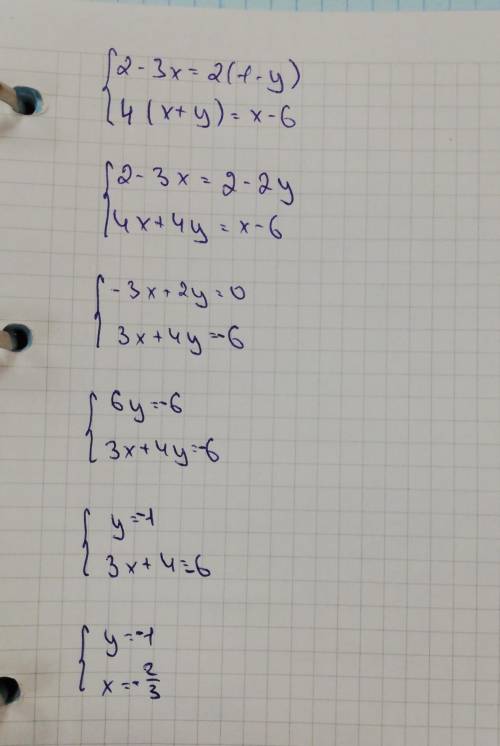 2 - 3x = 2(1 - y)
4(x + y) = x - 6
2 - 3x = 2 - 2y
4x + 4y = x - 6
-3x + 2y = 0
3x + 4y = -6
6y = -6
3x + 4y = -6
y = -1
3x + 4 = 6
y = -1
x = -2/3